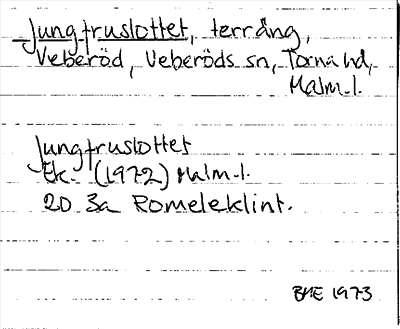 Jungfruslottet, terräng,
Veberöd, Veberöds sn, Torna hd,
Malm-l.
Jungfruslottet
Ek. (1972) Malm-l.
2D 3a Romeleklint.
BHE 1973